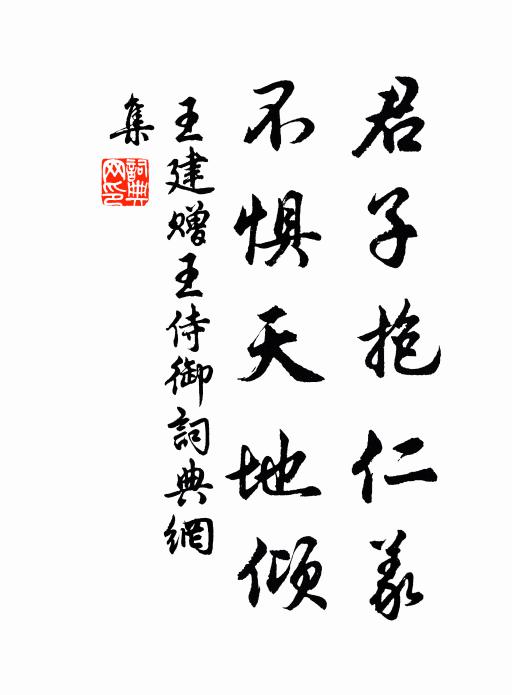 君子抱仁義
不惧天地傾
王建赠王侍御詞典網
集
詞典
网印